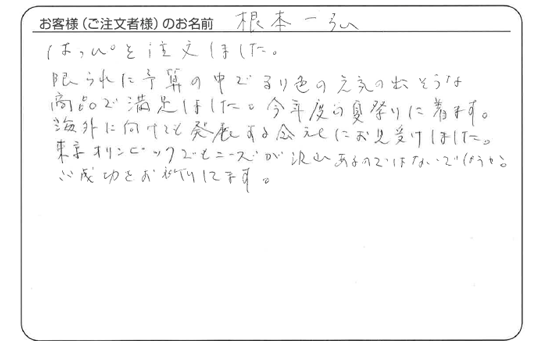 お客様(ご注文者様)のお名前 根本一
はっぴを注文しました。
限られた予算の中で明るい色の元気の出そうな
商品で満足しました。今年度の夏祭りに着ます。
海外に向けても発展する会社にお見受けしました。
東京オリンピックでもニーズが沢山あるのではないでしょうか。
ご成功をお祈りしてます。